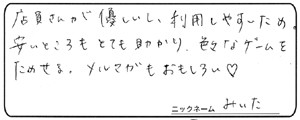 店員さんが優しいし、利用しやすいため。
安いところもとても助かり、色々なゲームを
ためせる。メルマガもおもしろい♡
ニックネーム みいた